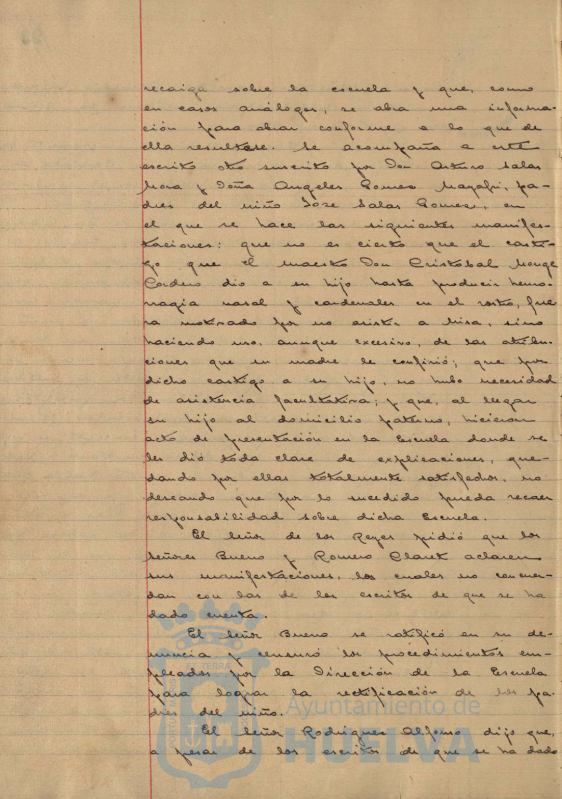 recaiga sobre la escuela y que, como
en casos análogos, se abra una informa-
ción para obrar conforme a lo que de
ella resultase. Se acompaña a este
escrito otro suscrito por Don Arturo Salas
Mora y Doña Angeles Gomez Mayofi, pa-
dres del niño José Salas Gomez, en
el que se hace las siguientes manifes-
taciones: que no es cierto que el casti-
go que el maestro Don Cristobal Monge
Cordero dio a su hijo hasta producir hemo-
rragia nasal y cardenales en el rostro, fue-
ra motivado por no asistir a Misa, sino
haciendo uso, aunque excesivo, de las atribu-
ciones que su madre le confirió; que por
dicho castigo a su hijo, no hubo necesidad
de asistencia facultativa; y que, al llegar
su hijo al domicilio paterno, hicieron
acto de presentación en la Escuela donde se
les dió toda clase de explicaciones, que-
dando por ellas totalmente satisfechos, no
deseando que por lo sucedido pueda recaer
responsabilidad sobre dicha Escuela.
El Señor de los Reyes pidió que los
Señores Bueno y Romero Claret aclaren
sus manifestaciones, las cuales no concuer-
dan con las de los escritos de que se ha
dado cuenta.
El Señor Bueno se ratificó en su de-
nuncia y censuró los procedimientos em-
pleados por la Dirección de la Escuela
para lograr la rectificación de los pa-
dres del niño.
El Señor Rodriguez Alfonso dijo que,
a pesar de los escritos de que se ha dado
Ayuntamiento de
HUELVA